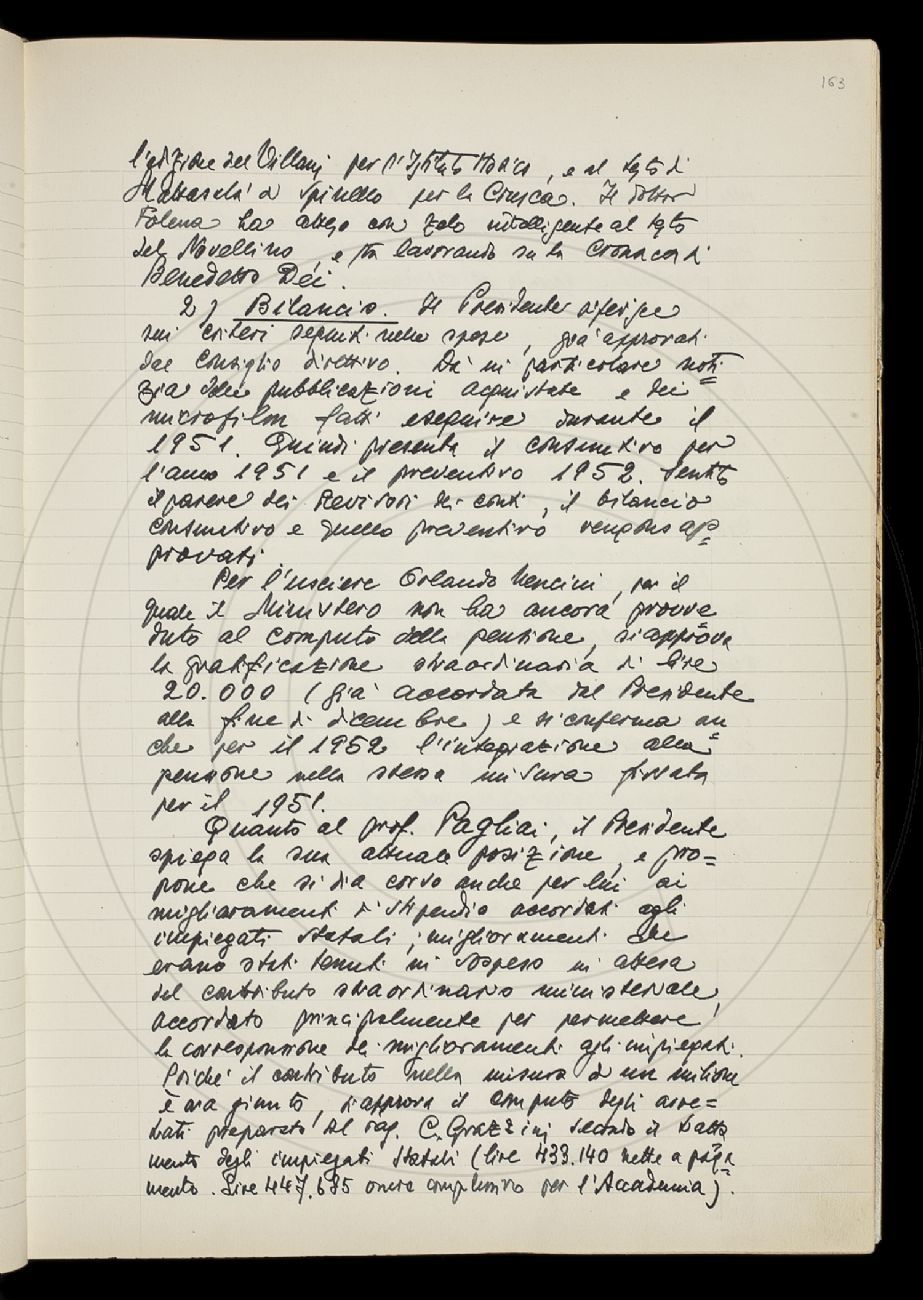 163
l'edizione del Villani per l'Istituto Storico, e al testo di
Mattasalà di Spinello per la Crusca. Il dottor
Folena ha atteso con zelo intelligente al testo
del Novellino, e sta lavorando su la Cronaca di
Benedetto Dei.
2) Bilancio. Il Presidente riferisce
sui criteri seguiti nelle spese, già approvati
dal Consiglio direttivo. Dà in particolare noti=
zia delle pubblicazioni acquistate e dei
microfilm fatti eseguire durante il
1951. Quindi presenta il consuntivo per
l'anno 1951 e il preventivo 1952. Sentito
il parere dei Revisori dei conti, il bilancio
consuntivo e quello preventivo vengono ap=
provati.
Per l'usciere Orlando Mencini, per il
quale il Ministero non ha ancora provve
duto al computo della pensione, si approva
la gratificazione straordinaria di lire
20.000 (già accordata dal Presidente
alla fine di dicembre) e si conferma an=
che per il 1952 l'integrazione alla
pensione nella stessa misura fissata
per il 1951.
Quanto al prof. Pagliai, il Presidente
spiega la sua attuale posizione, e pro=
pone che si dia corso anche per lui ai
miglioramenti di stipendio accordati agli
impiegati statali; miglioramenti che
erano stati tenuti in sospeso in attesa
del contributo straordinario ministeriale,
accordato principalmente per permettere
la corresponsione dei miglioramenti agli impiegati.
Poiché il contributo nella misura di un milione
è ora giunto, si approva il computo degli arre=
trati preparato dal rag. C. Grazzini secondo il tratta
mento degli impiegati statali (lire 433.140 nette a paga=
mento. Lire 447.635 onere complessivo per l'Accademia).